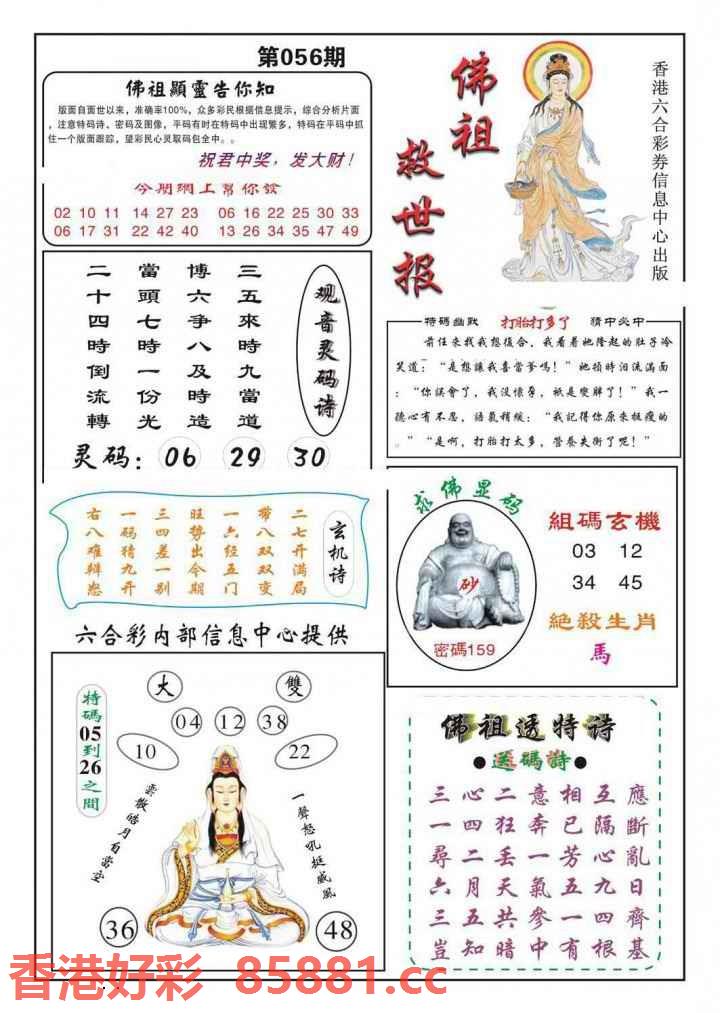 第056期
佛祖顯靈告你知
版面自面世以来，准确率100%，众多彩民根据信息提示，综合分析片面
，注意特码诗、密码及图像，平码有时在特码中出现繁多，特码在平码中抓
住一个版面跟踪，望彩民心灵取码包全中。。
祝君中奖，发大财！
今期網上幫你發
02 10 11 14 27 23 06 16 22 25 30 33
06 17 31 22 42 40 13 26 34 35 47 49
佛祖
救世报
香港六合彩券信息中心出版
观音灵码诗
三五來時九當道
博六爭八及時造
當頭七時一份光
二十四時倒流轉
灵码： 06 29 30
特碼幽默 打胎打多了 猜中必中
前任来找我想復合，我看着她隆起的肚子冷
笑道：“是想讓我喜當爹嗎！”她頓時泪流滿面
：“你誤會了，我没懷孕，衹是變胖了！”我一
聽心有不忍，語氣稍緩：“我記得你原来挺瘦的
。”“是啊，打胎打太多，營養失衡了呢！”
玄机诗
二七开满局
带八双双变
一六经五门
旺势出今期
三四差一别
一码猜九开
右八难辩愁
求佛显码
砂
密碼159
組碼玄機
03 12
34 45
絕殺生肖
馬
六合彩内部信息中心提供
特碼05到26之間
大 雙
04 12 38
10 22
雲散皓月自當空
一聲怒吼挺威風
36 48
佛祖透特诗
●送碼詩●
三心二意相互應
一四狂奔已隔斷
尋二丢一芳心亂
六月天氣五九日
三五共參一四齊
豈知暗中有根基
香港好彩 85881.cc